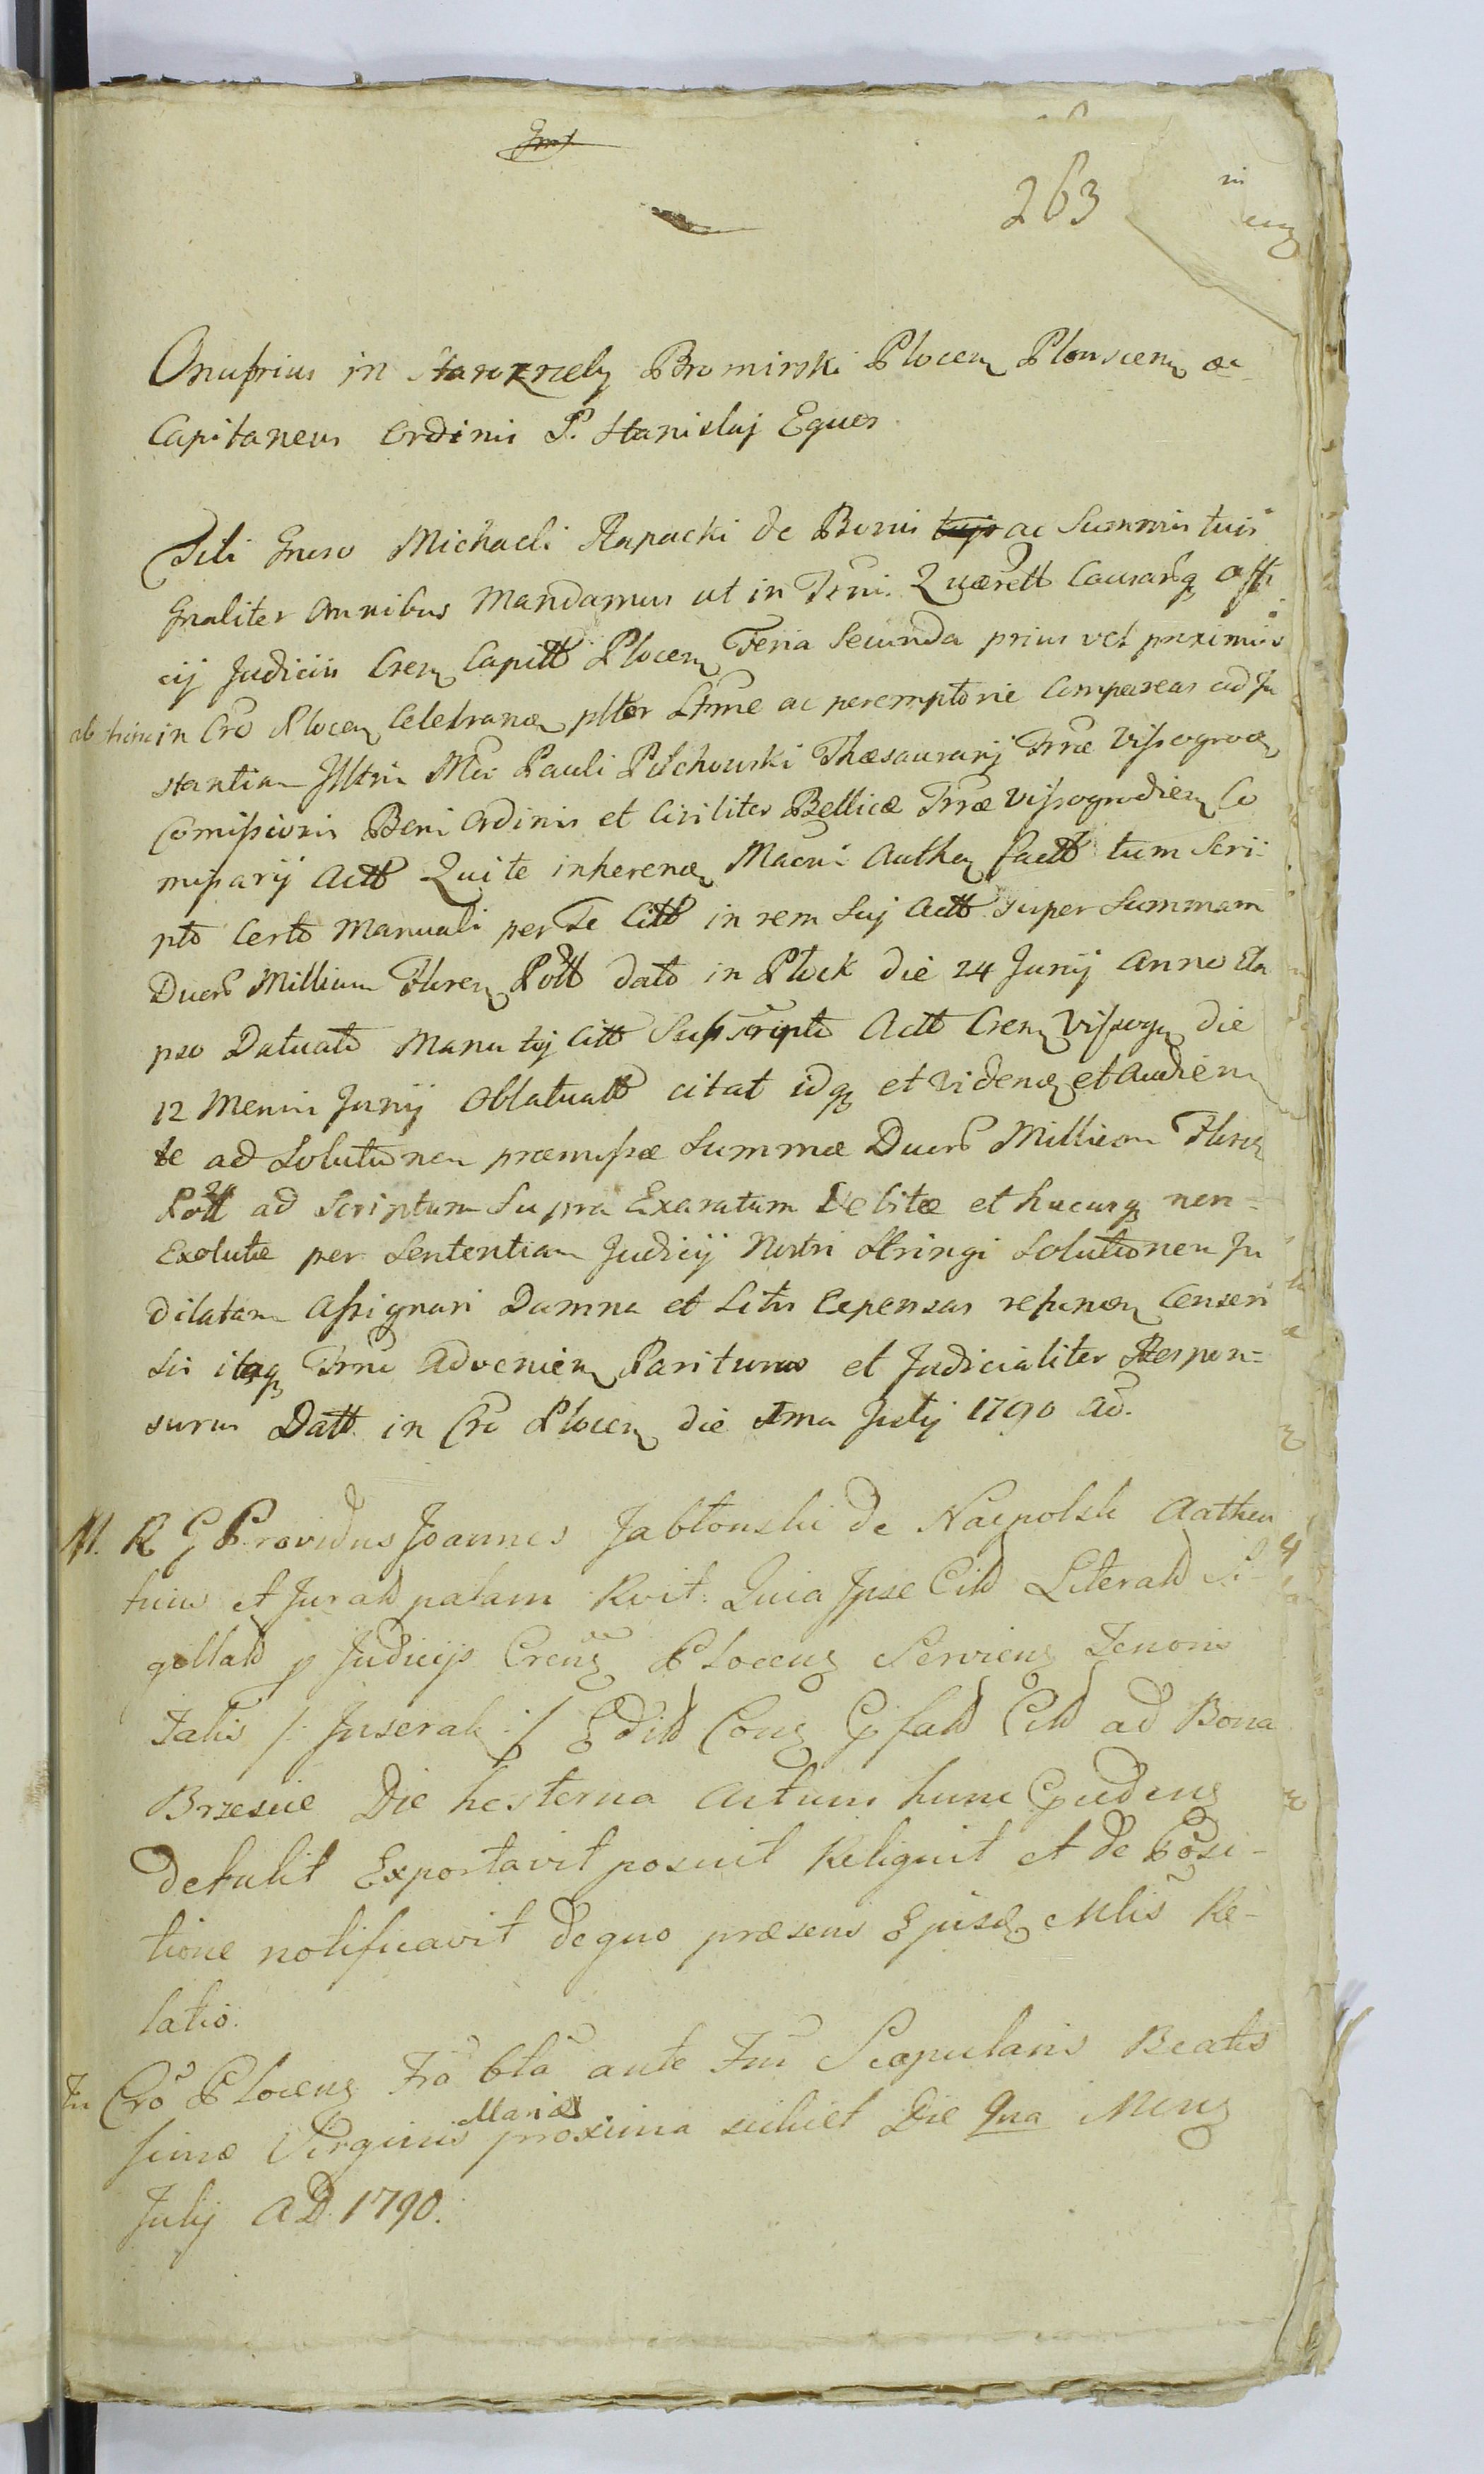 263
Onufrius in Starorzeby Bromirski Plocen Plonscen ac
Capitaneus Ordinis S. Stanislaj Eques
Tibi Gnroso Michaeli Rapacki de Bonis ac Summis tuis
Gnaliter Omnibus Mandamus ut in Trni. Querell Causarq Offi
cij Judiciis Cren Capitt Plocen Feria Secunda prius vel proximis
ab hinc in Cro Plocen Celebrand plter Ltme ac peremptorie Compareas ad In
stantiam Illtris Mci Pauli Pilchowski Thæsaurarij Trræ Vissogrod
Comissionis Boni Ordinis et Civiliter Bellicæ Trræ Vissogrodien Co
missarij Actt Qui te inherend Macni Authen factt tum Scri
pto Certo Manuali per Te Citt in rem Suj Actt super Summam
Duor Millium Floren Poll dato in Plock die 24 Junij Anno Ela
pso Datuato Manu tuj Citt Subscripto Actt Cren Vissogr die
12 Mensis Junij Oblatuatt citat idq et Videnq et Audien
te ad Solutionem præmissæ Summæ Duor Millium Floren
Poll ad Scriptum Supra Exaratum Debitæ et hucusq non=
Exolutæ per Sententiam Judicij Nostri Stringi Solutionem In
dilatam Assignari Damna et Litis Expensas refundi Censeri
Sis itaq Trno Advenien Pariturus et Judicialiter Respon=
surus Datt. in Cro Plocen die 1ma Julij 1790 Ad.
M. R G Providus Joannes Jabłonski de Nacpolsk Authen
ticus et Juratt palam Rvit: Quia Ipse Citt Literatt Si-
gillatt p Judicijs Crens Plocens Serviens Tenoris
Talis /: Inserat :/ Cons Citt ad Bona
Brzescie Die hesterna Actum hunc
Detulit Exportavit posuit Reliquit et de Posi-
tione notificavit de quo præsens Ejusd Mlis Re-
latio.
In Cro Plocens Fra 6ta ante Fm Scapularis Beatis
simæ Virginis Mariæ proxima scilicet Die 9na Mens
Julij AD. 1790.